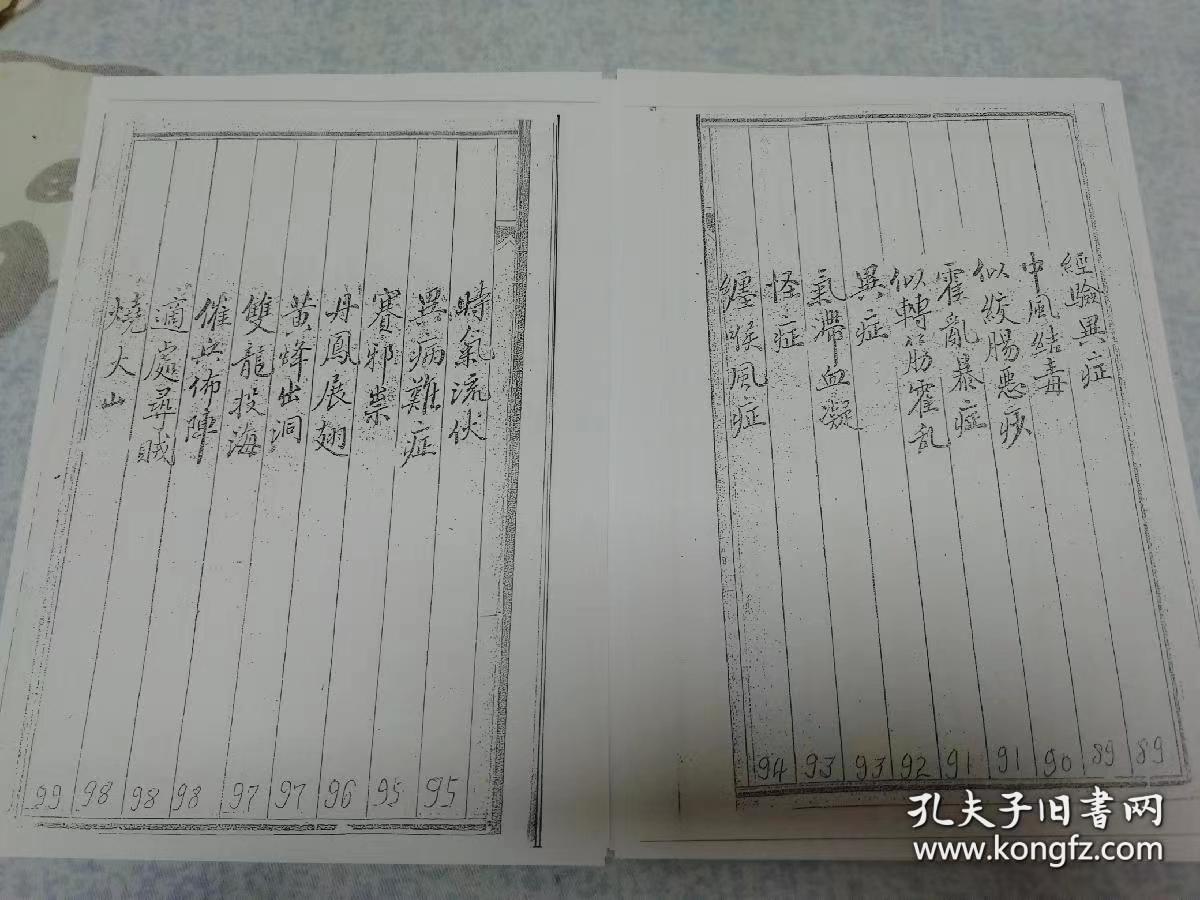 經驗異症 89
中風結毒 89
似絞腸惡痧 90
霍亂暴症 91
似轉筋霍乱 91
異症 92
氣滯血凝 93
怪症 93
纏喉風症 94
時氣流伏 95
異病難症 95
賽邪祟 96
丹鳳展翅 97
黃蜂出洞 97
雙龍投海 98
催兵佈陣 98
適處尋賊 98
燒火山 99
孔夫子旧书网
www.kongfz.com